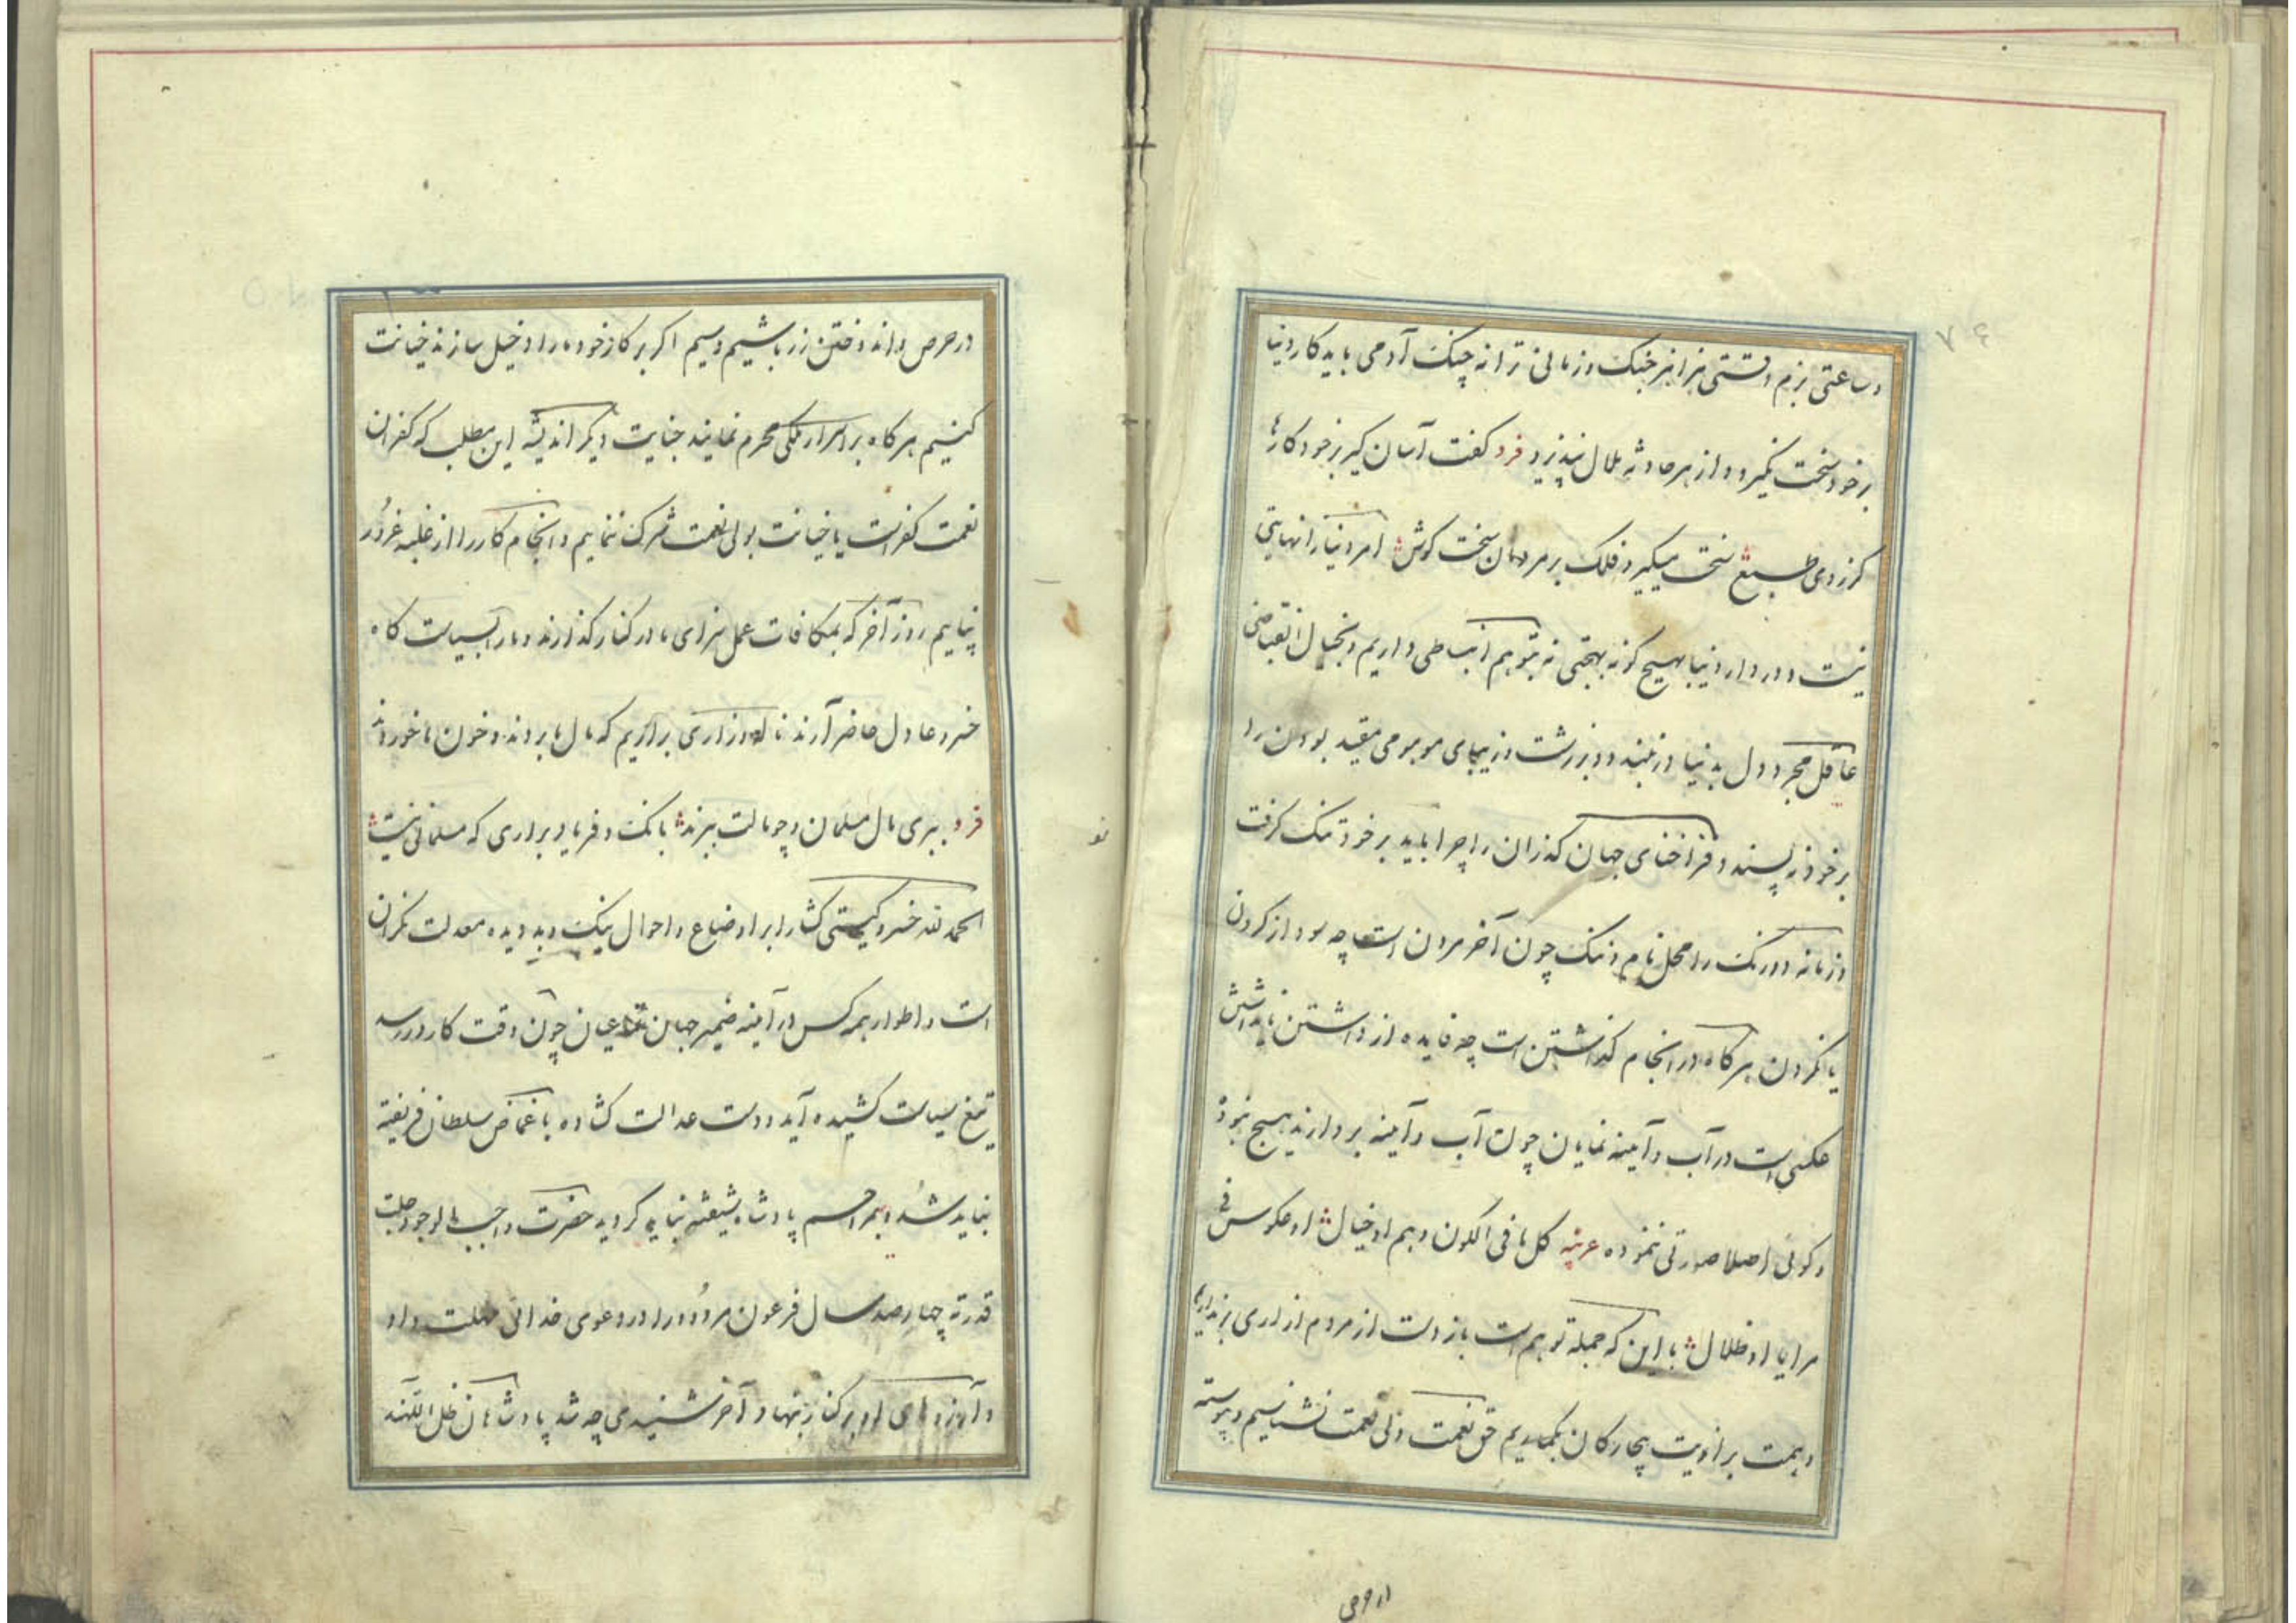 ۷۶
و ساعتی بزم وقتی هزاهز جنک و زمانی ترانه چنک آدمی باید کار دنیا
بر خود سخت نکیرد و از هر حادثه ملال نپذیرد فرد کفت آسان کیر بر خود کارها
کز روی طبع سخت میکیرد فلک بر مردمان سخت کوش امر دنیا را نهایتی
نیست و در دار دنیا بهیچ کونه بهجتی نه بتوهم انبساطی داریم و بخیال انقباضی
عاقل مجرد دل بدنیا در نبندد و بزشت و زیبای موهومی مقید بودن را
بر خود نه پسندد فراخنای جهان کذران را چرا باید بر خود تنک کرفت
و زمانه دورنک را محل نام و ننک چون آخر مردن است چه سود از کردن
یا نکردن هرکاه در انجام کذاشتن است چه فایده از داشتن یا نداشتن
عکسی است در آب و آینه نمایان چون آب و آینه بردارند هیچ نبود
و کوئی اصلا صورتی ننموده عربیه کل ما فی الکون وهم او خیال او عکوس فی
مرایا او ظلال با این که جمله توهم است باز دست از مردم ازاری برنداریم
و همت بر اذیت بیچارکان بکماریم حق نعمت ولی نعمت نشناسیم و پیوسته
در حرص و اندوختن زر باشیم و سیم اکر بر کار خود ما را دخیل سازند خیانت
کنیم هرکاه بر اسرار ملکی محرم نمایند جنایت دیکر اندیشه این مطلب که کفران
نعمت کفر است یا خیانت بولی نعمت شرک ننماییم و انجام کار را از غلبه غرور
نپاییم روز آخر که بمکافات عمل سزای ما در کنار کذارند و ما را بسیاست کاه
خسرو عادل حاضر آرند ناله و زاری برآریم که مال ما بردند و خون ما خوردند
فرد ببری مال مسلمان و چو مالت ببرند بانک و فریاد براری که مسلمانی نیست
الحمد لله خسرو کیتی کشا را بر اوضاع و احوال نیک و بد دیده معدلت نکران
است و اطوار همه کس در آینه ضمیر جهان نما عیان چون وقت کار در رسد
تیغ سیاست کشیده آید و دست عدالت کشاده با غماض سلطان فریفته
نباید شد و بمراحم پادشاه شیفته نباید کردید حضرت واجب الوجود جلت
قدرته چهارصد سال فرعون مردود را در دعوی خدائی مهلت داد
و آرزوهای او بر کنار نهاد آخر شنیدی چه شد پادشاهان ظل اللهند